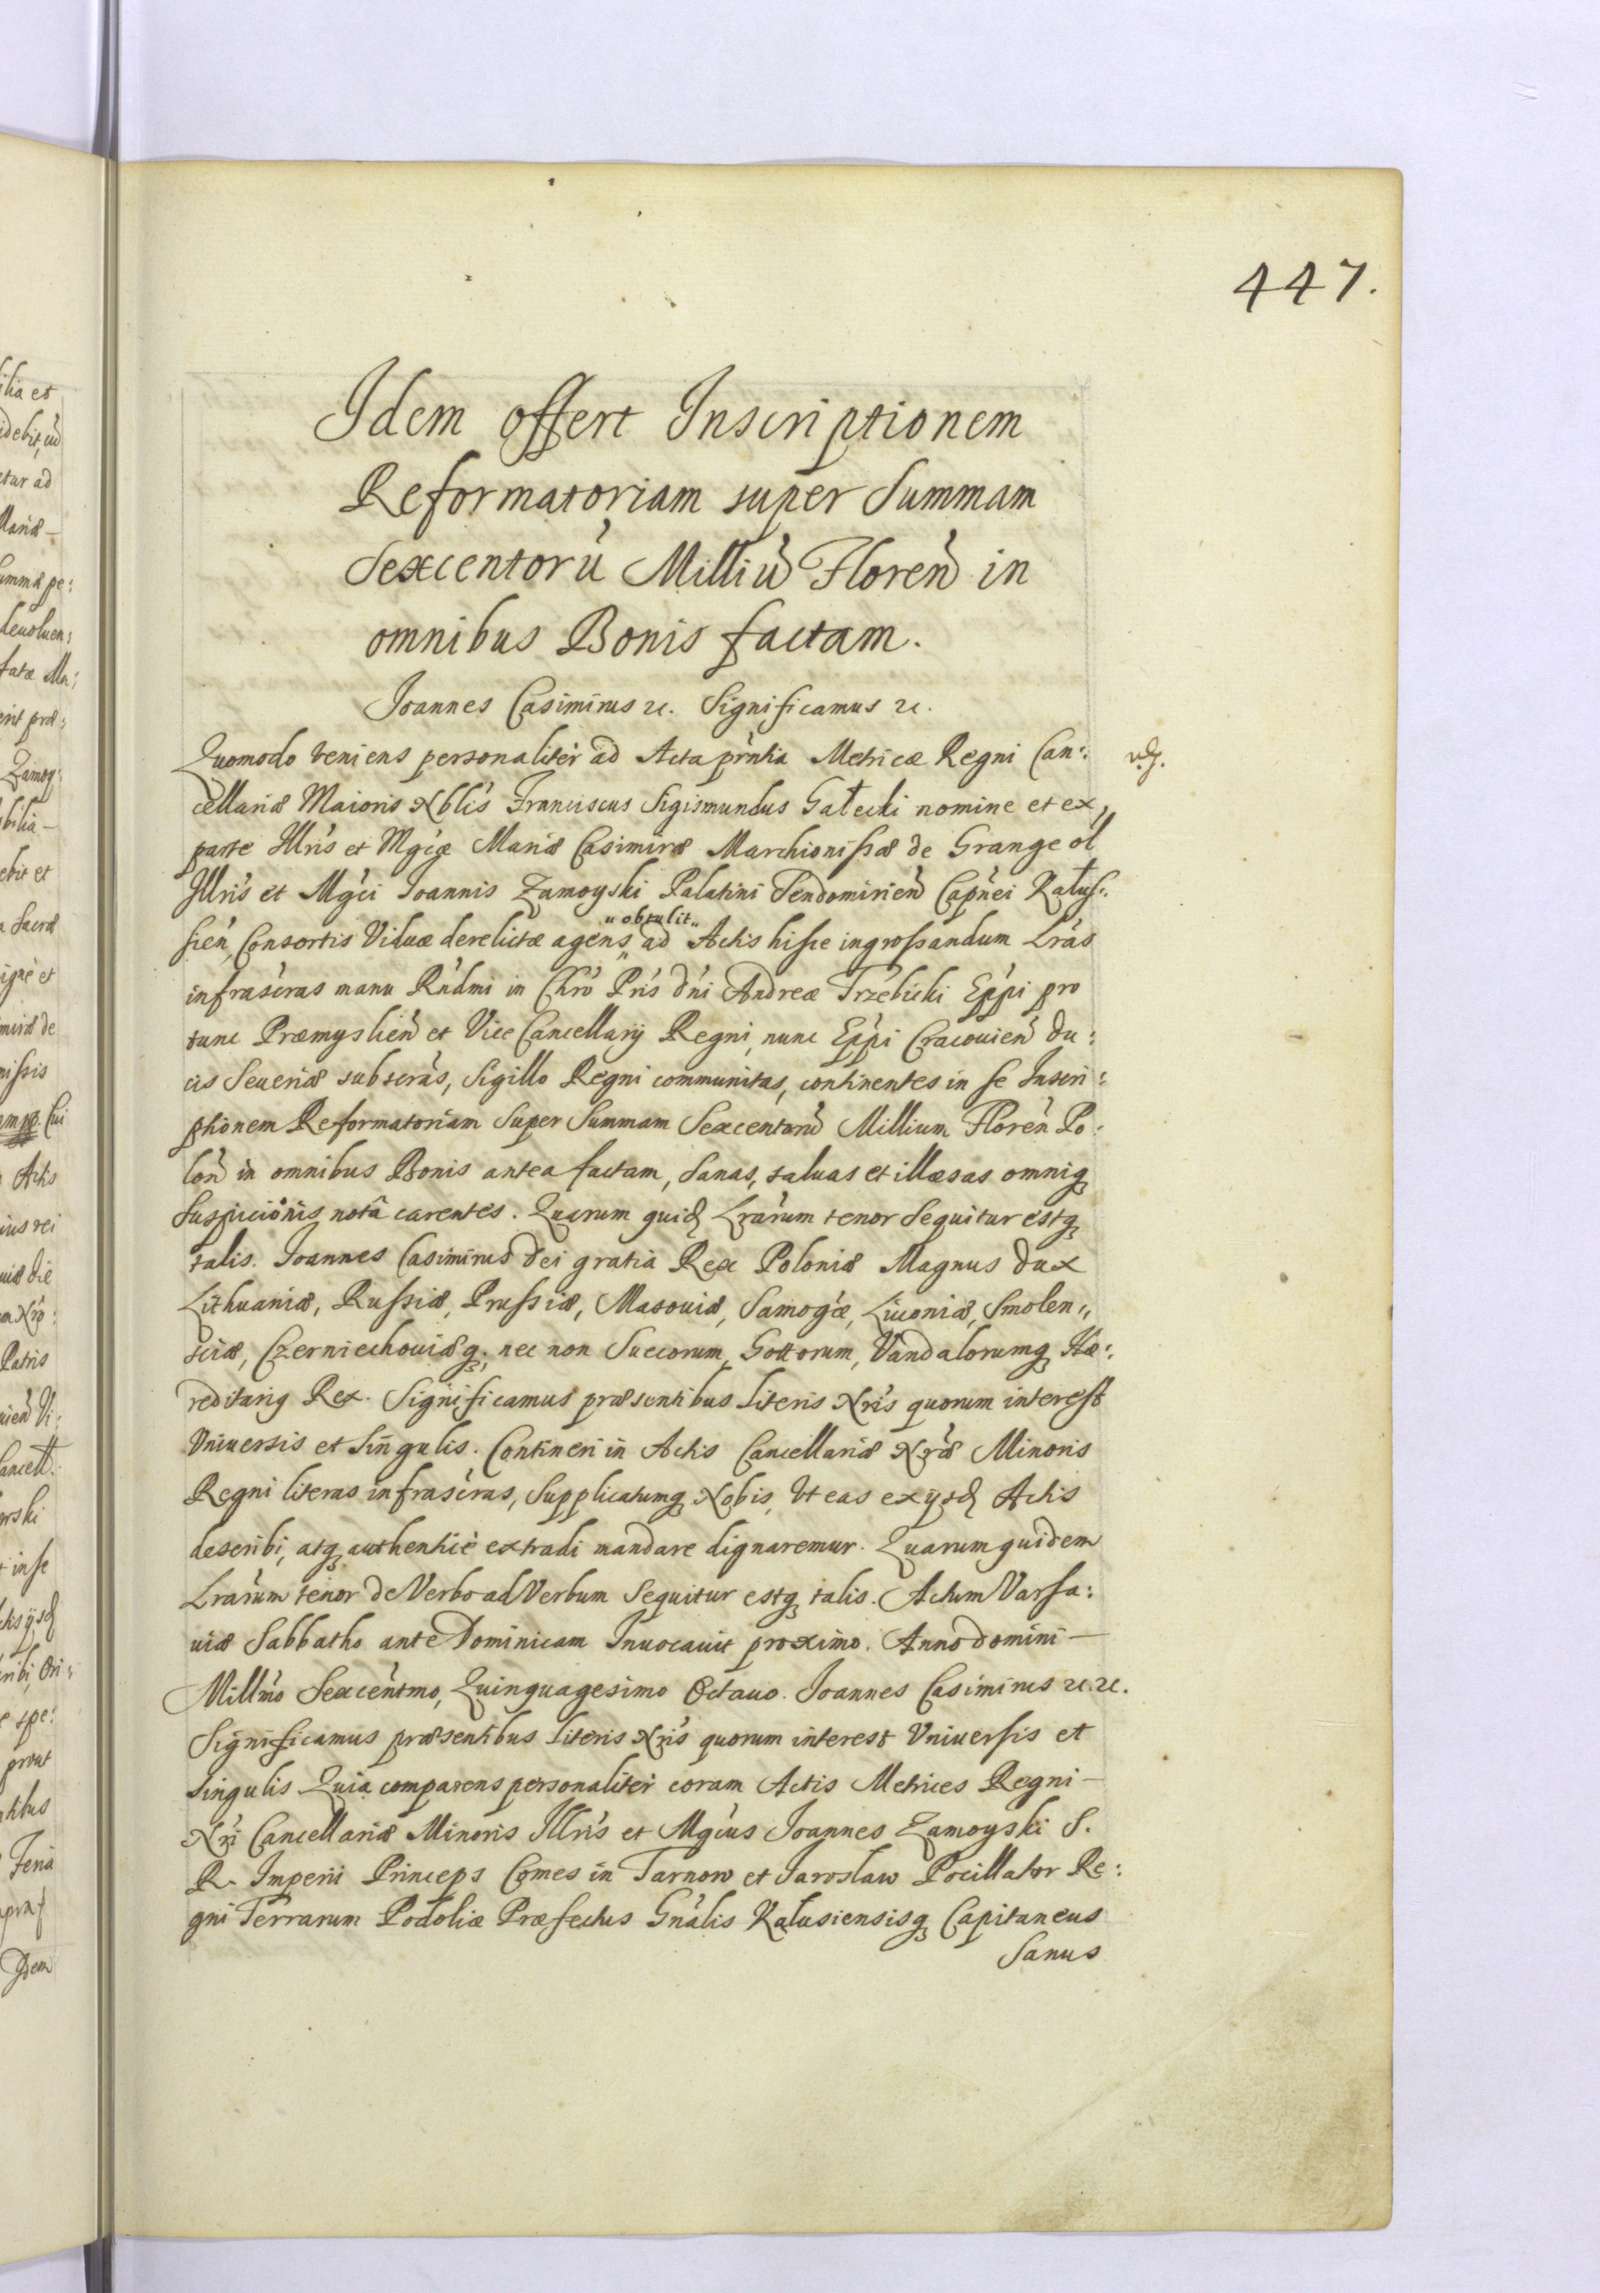 447.
Idem offert Inscriptionem
Reformatoriam super Summam
Sexcentorũ Milliũ Floreñ in
omnibus Bonis factam.
Joannes Casimirus &c. Significamus &c.
Quomodo veniens personaliter ad Acta prntia Metricæ Regni Can:
cellariæ Maioris Nblis Franciscus Sigismundus Gałecki nomine et ex
parte Illris et Mgcæ Mariæ Casimiræ Marchionissæ de Grange ol
Illris et Mgci Joannis Zamoyski Palatini Sendomirieñ Capnei Kałus:
sieñ, Consortis Viduæ derelictæ agens „obtulit„ ad Actis hisce ingrossandum Lras
infrascras manu Rndmi in Chro Pris dni Andreæ Trzebicki Eppi pro
tunc Præmyslieñ et Vice Cancellarij Regni, nunc Eppi Cracouieñ Du:
cis Seueriæ subscras, Sigillo Regni communitas, continentes in se Inscri:
ptionem Reformatoriam Super Summam Sexcentorũ Millium Floreñ Po:
loñ in omnibus Bonis antea factam, Sanas, saluas et illæsas omniq
Suspicionis notâ carentes. Quarum quid Lrarum tenor Sequitur estq
talis. Joannes Casimirus Dei gratia Rex Poloniæ Magnus Dux
Lithuaniæ, Russiæ, Prussiæ, Masouiæ, Samogæ, Liuoniæ, Smolen„
sciæ, Czerniechouiæq; nec non Suecorum, Gottorum, Vandalorumq Hæ:
reditarig Rex. Significamus præsentibus Literis Nris quorum interest
Vniuersis et Singulis. Contineri in Actis Cancellariæ Nræ Minoris
Regni literas infrascras, Supplicatumq Nobis, Vt eas ex ijsd Actis
describi, atq authenticè extradi mandare dignaremur. Quarum quidem
Lrarum tenor de Verbo ad Verbum Sequitur estq talis. Actum Varsa:
uiæ Sabbatho ante Dominicam Inuocauit proximo. Anno domini —
Millmo Sexcentmo, Quinquagesimo Octauo. Joannes Casimirus &c. &c.
Significamus præsentibus Literis Nris quorum interest Vniuersis et
singulis Quia comparens personaliter coram Actis Metrices Regni —
Nri Cancellariæ Minoris Illris et Mgcus Joannes Zamoyski S.
R. Imperii Princeps Comes in Tarnow et Jaroslaw Pocillator Re:
gni Terrarum Podoliæ Præfectus Gnalis Kałusiensisq Capitaneus
Sanus